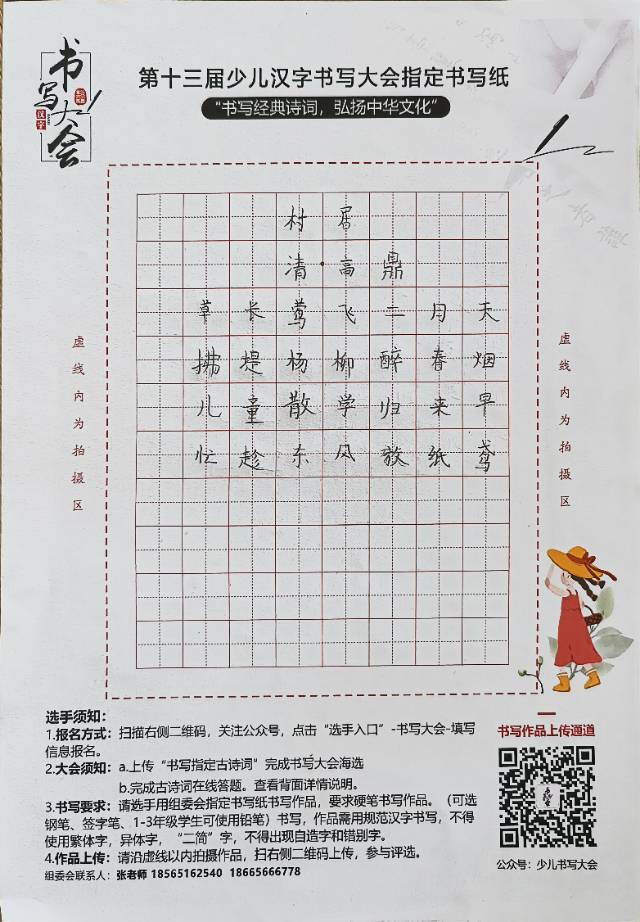 书写大会
汉字
第十三届少儿汉字书写大会指定书写纸
“书写经典诗词，弘扬中华文化”
村居
清·高鼎
草长莺飞二月天
拂堤杨柳醉春烟
儿童散学归来早
忙趁东风放纸鸢
虚线内为拍摄区
虚线内为拍摄区
选手须知：
1.报名方式：扫描右侧二维码，关注公众号，点击“选手入口”-书写大会-填写
信息报名。
2.大会须知：a.上传“书写指定古诗词”完成书写大会海选
b.完成古诗词在线答题。查看背面详情说明。
3.书写要求：请选手用组委会指定书写纸书写作品，要求硬笔书写作品。（可选
钢笔、签字笔、1-3年级学生可使用铅笔）书写，作品需用规范汉字书写，不得
使用繁体字，异体字，“二简”字，不得出现自造字和错别字。
4.作品上传：请沿虚线以内拍摄作品，扫右侧二维码上传，参与评选。
组委会联系人：张老师 18565162540 18665666778
书写作品上传通道
公众号：少儿书写大会